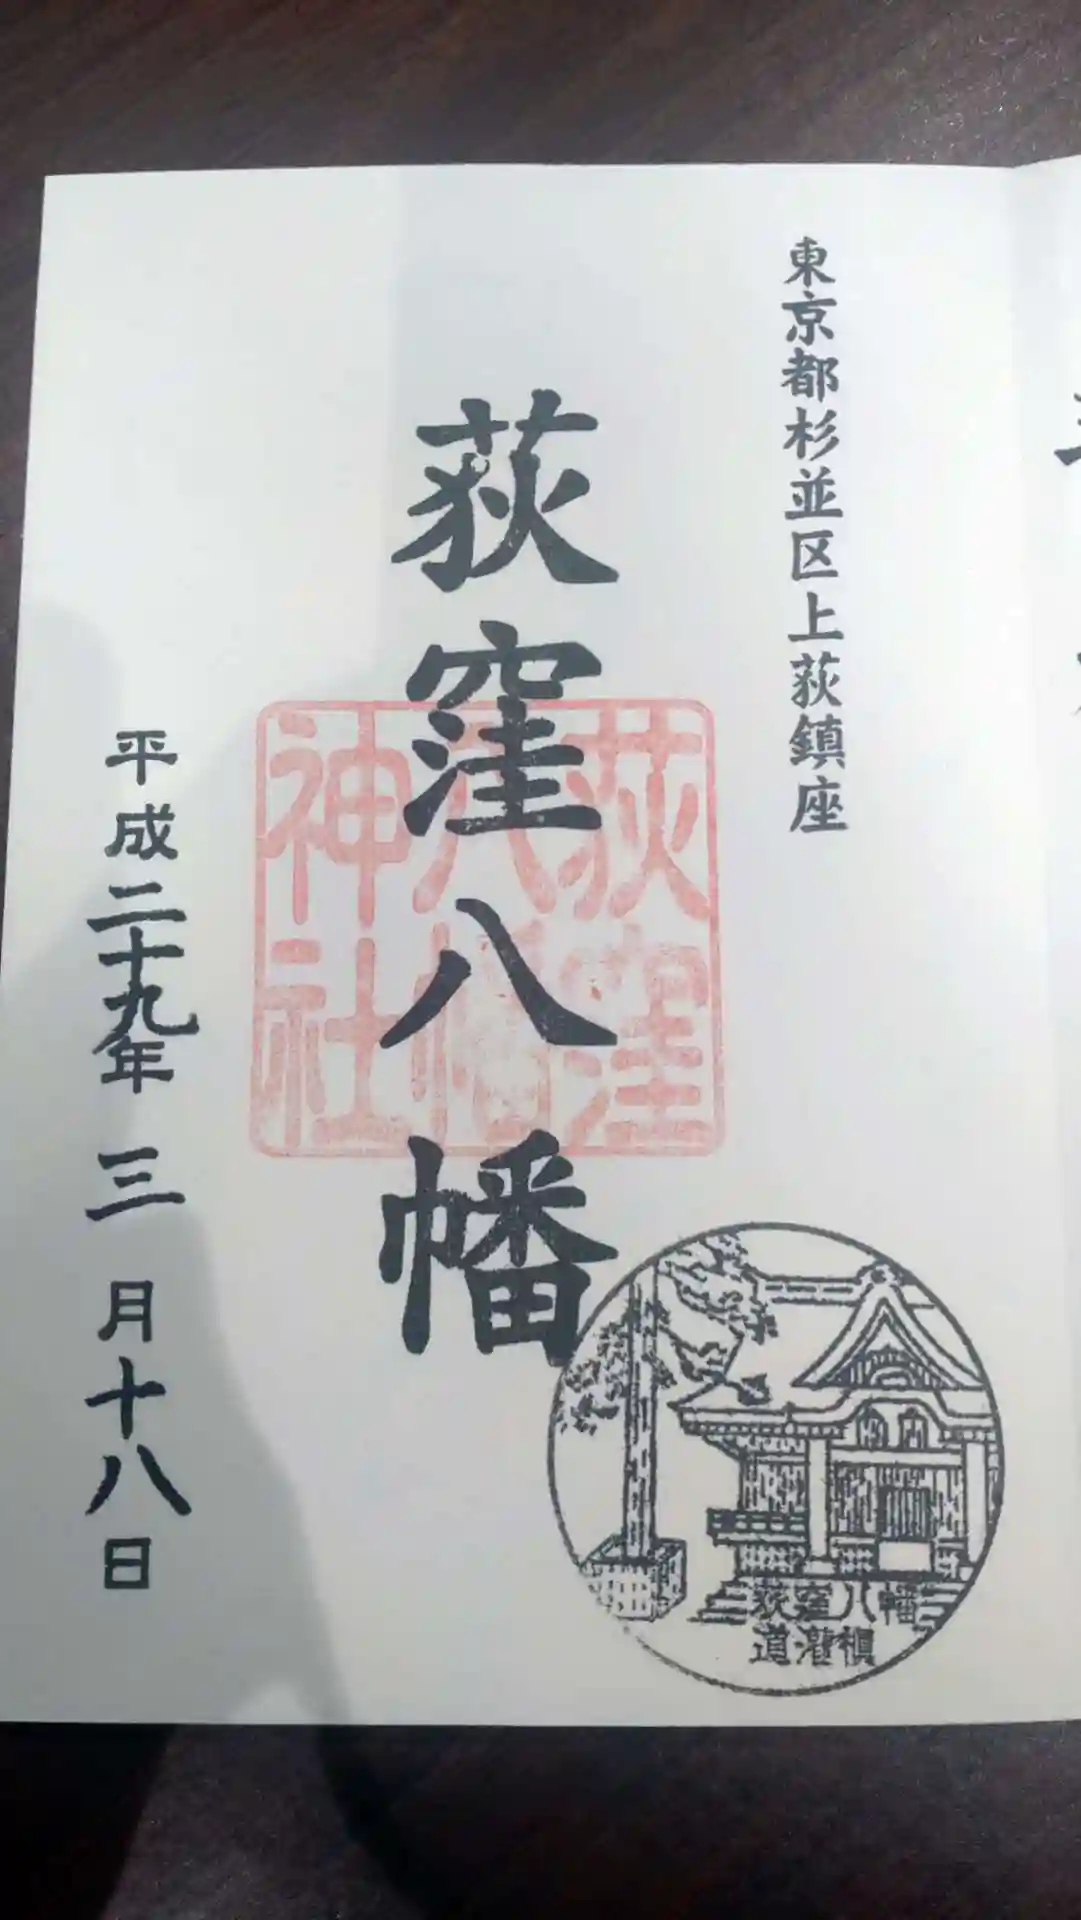 東京都杉並区上荻鎮座
荻窪八幡
荻窪
八幡
神社
平成二十九年三月十八日
荻窪八幡
道灌槇